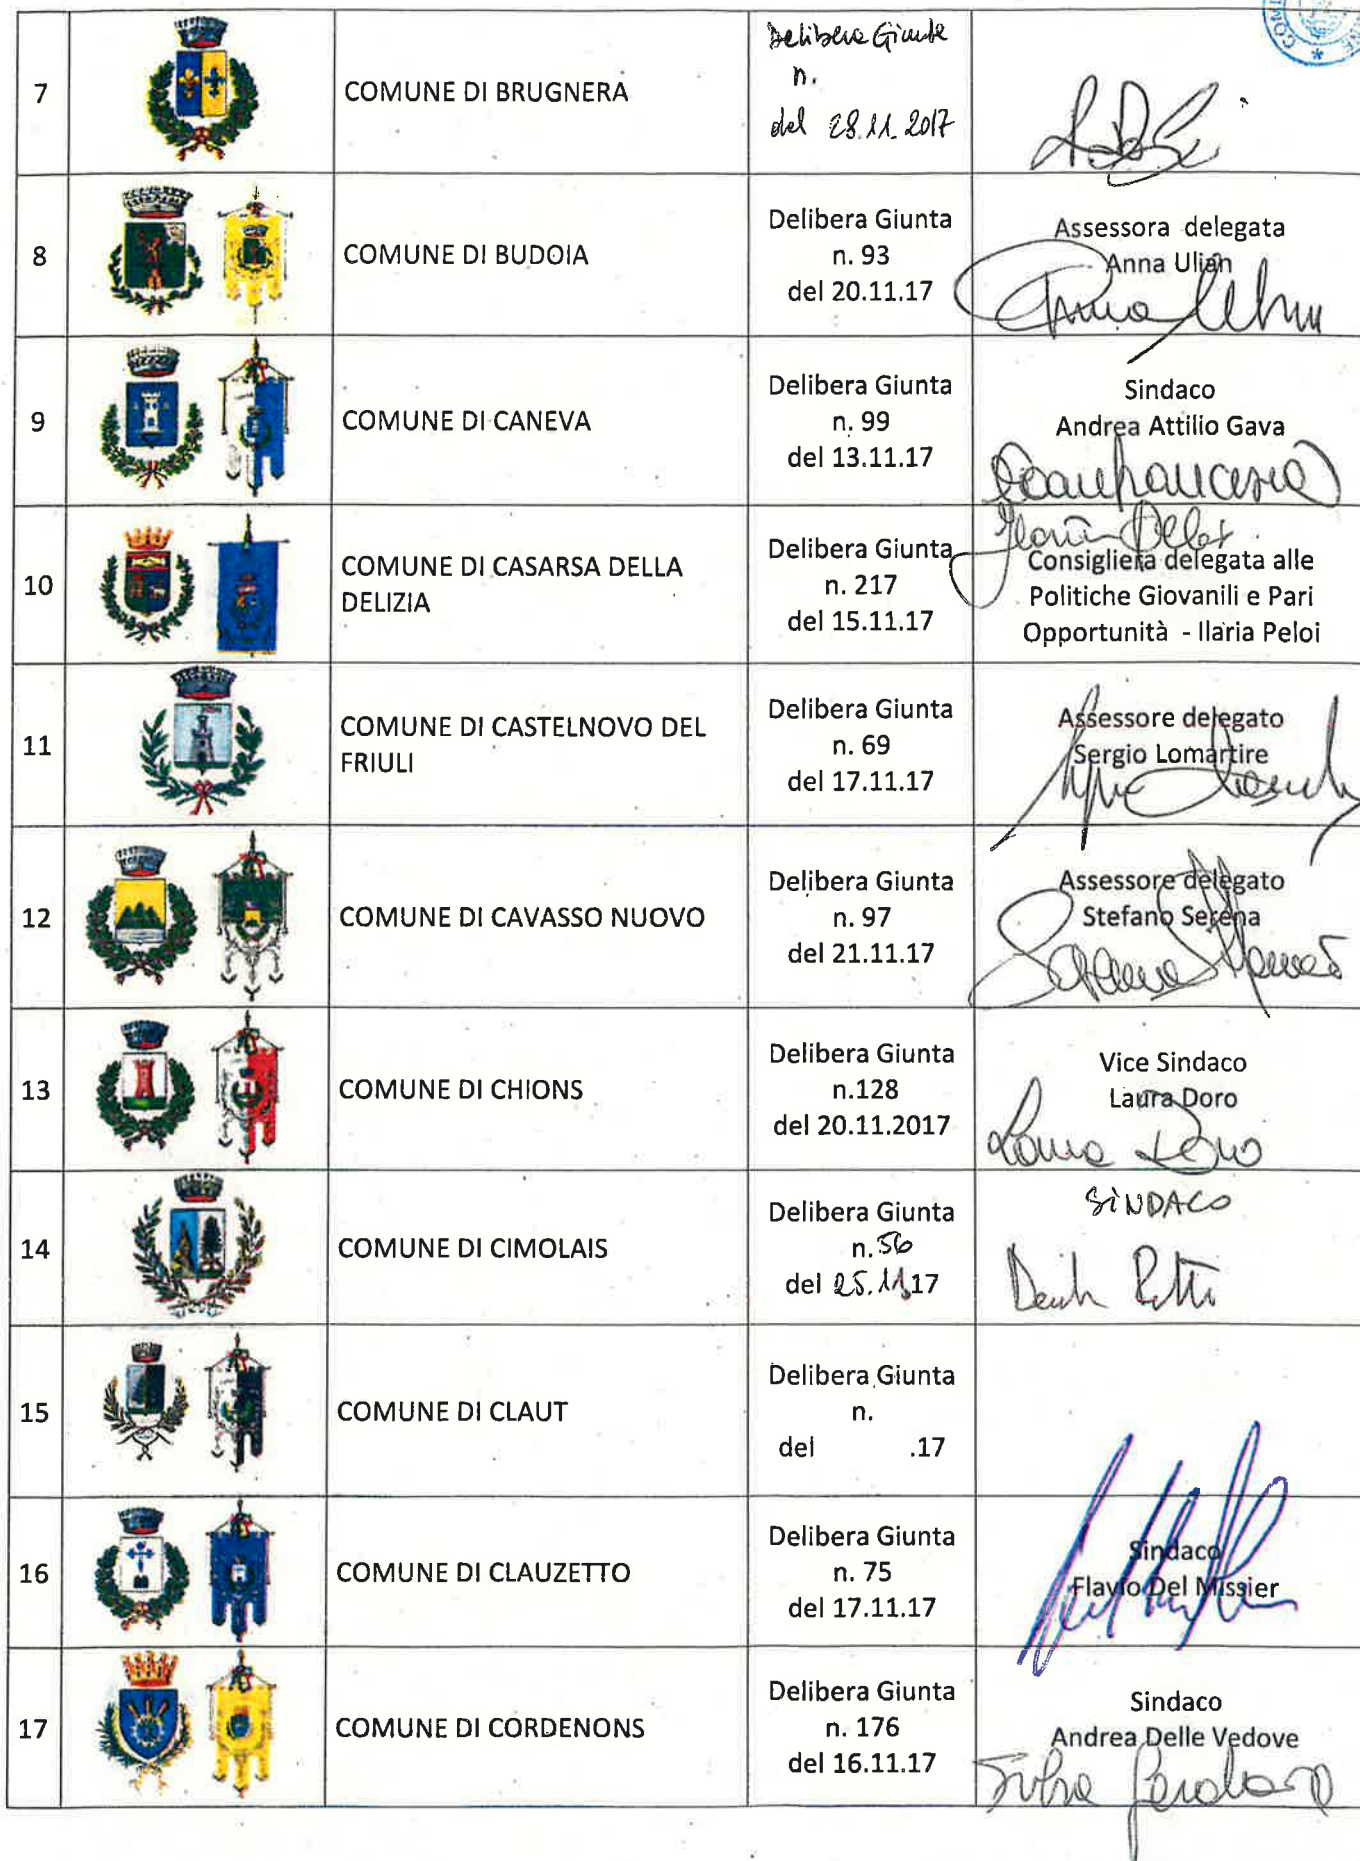 7
COMUNE DI BRUGNERA
Delibera Giunta
n.
del 28.11.2017
8
COMUNE DI BUDOIA
Delibera Giunta
n. 93
del 20.11.17
Assessora delegata
Anna Ulian
9
COMUNE DI CANEVA
Delibera Giunta
n. 99
del 13.11.17
Sindaco
Andrea Attilio Gava
10
COMUNE DI CASARSA DELLA
DELIZIA
Delibera Giunta
n. 217
del 15.11.17
Consigliera delegata alle
Politiche Giovanili e Pari
Opportunità - Ilaria Peloi
11
COMUNE DI CASTELNOVO DEL
FRIULI
Delibera Giunta
n. 69
del 17.11.17
Assessore delegato
Sergio Lomartire
12
COMUNE DI CAVASSO NUOVO
Delibera Giunta
n. 97
del 21.11.17
Assessore delegato
Stefano Serena
13
COMUNE DI CHIONS
Delibera Giunta
n.128
del 20.11.2017
Vice Sindaco
Laura Doro
Laura Doro
14
COMUNE DI CIMOLAIS
Delibera Giunta
n. 56
del 25.11.17
SINDACO
15
COMUNE DI CLAUT
Delibera Giunta
n.
del .17
16
COMUNE DI CLAUZETTO
Delibera Giunta
n. 75
del 17.11.17
Sindaco
Flavio Del Missier
17
COMUNE DI CORDENONS
Delibera Giunta
n. 176
del 16.11.17
Sindaco
Andrea Delle Vedove